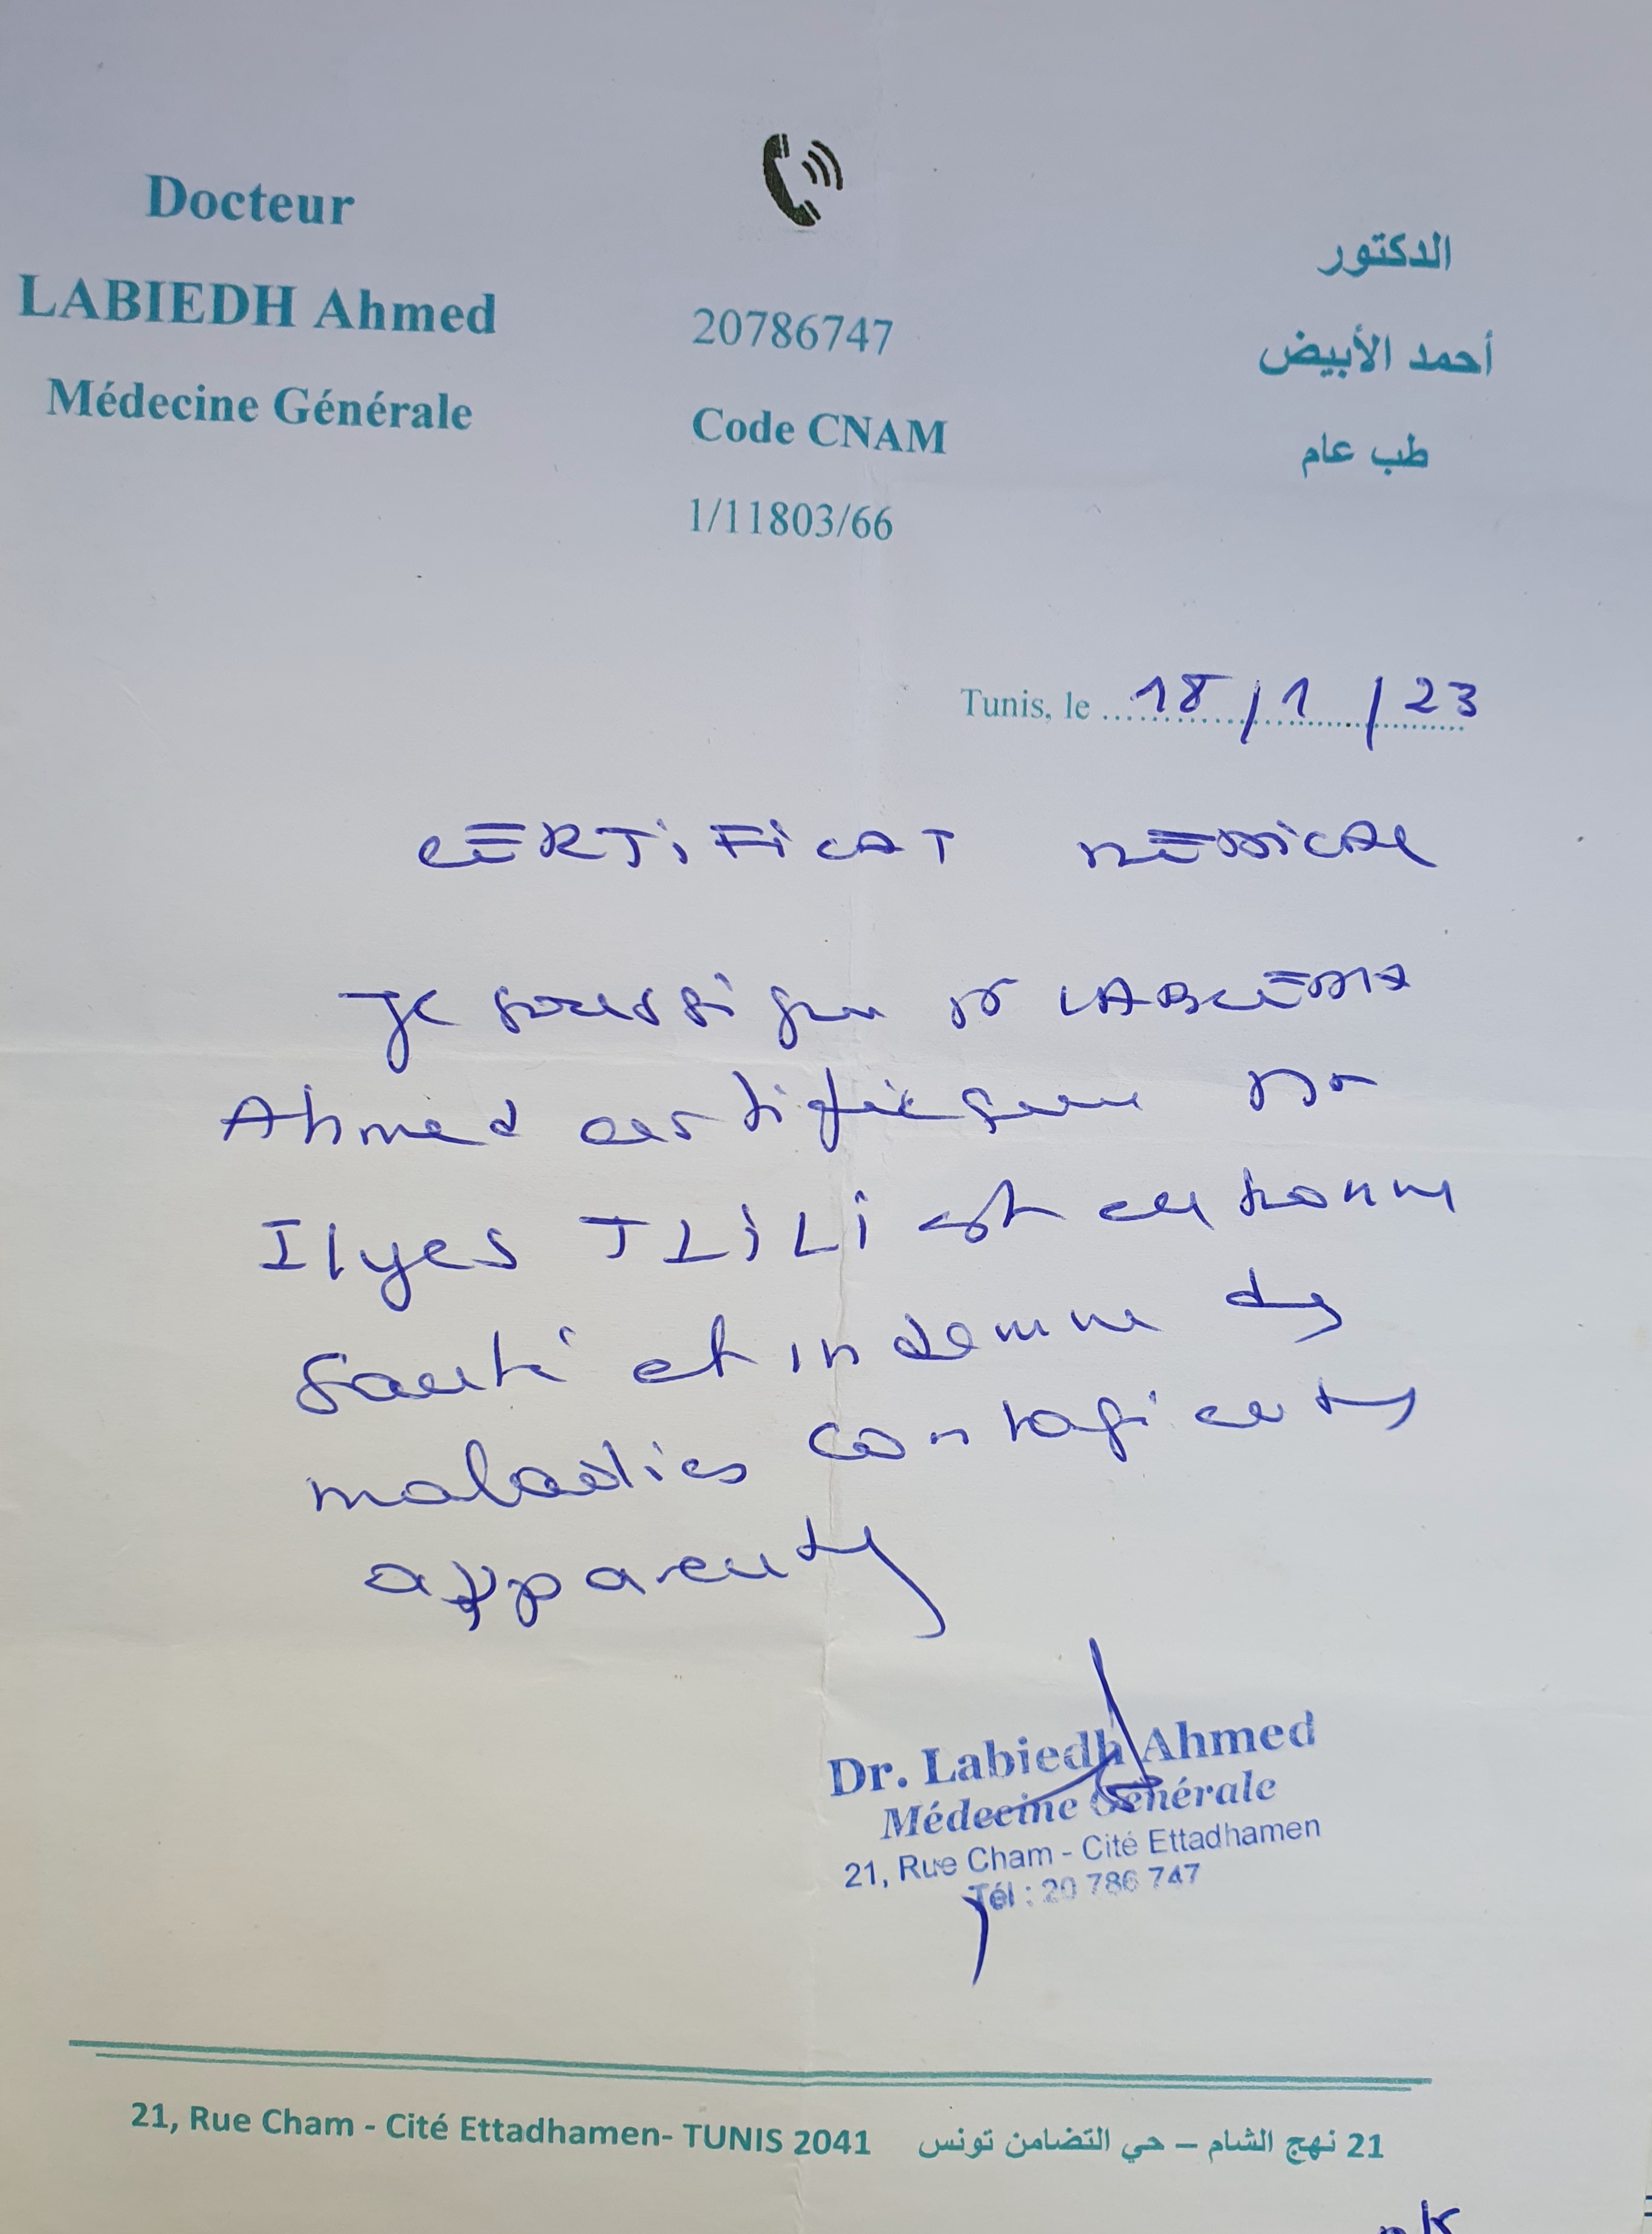 Docteur
LABIEDH Ahmed
Médecine Générale
20786747
Code CNAM
1/11803/66
الدكتور
أحمد الأبيض
طب عام
Tunis, le 18/1/23
CERTIFICAT MEDICAL
Je soussigné Dr LABIEDH
Ahmed certifie que Mr
Ilyes TLILI est en bonne
santé et indemne des
maladies contagieuses
apparentes
Dr. Labiedh Ahmed
Médecine Générale
21, Rue Cham - Cité Ettadhamen
Tél : 20 786 747
21, Rue Cham - Cité Ettadhamen- TUNIS 2041
21 نهج الشام – حي التضامن تونس